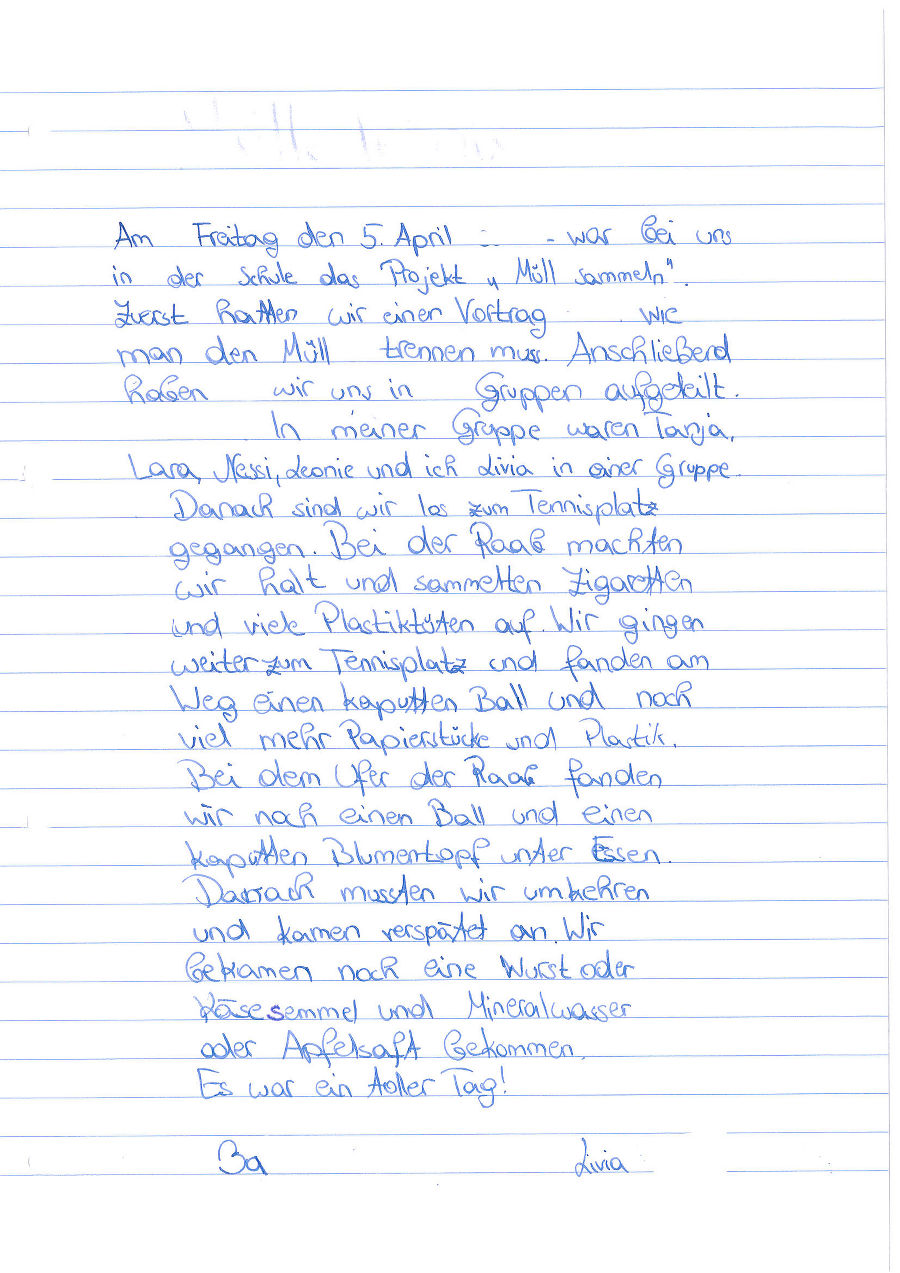 Am Freitag den 5. April war bei uns
in der Schule das Projekt „Müll sammeln".
Zuerst hatten wir einen Vortrag wie
man den Müll trennen muss. Anschließend
haben wir uns in Gruppen aufgeteilt.
In meiner Gruppe waren Tanja,
Lara, Nessi, Leonie und ich Livia in einer Gruppe.
Danach sind wir los zum Tennisplatz
gegangen. Bei der Raab machten
wir halt und sammelten Zigaretten
und viele Plastiktüten auf. Wir gingen
weiter zum Tennisplatz und fanden am
Weg einen kaputten Ball und noch
viel mehr Papierstücke und Plastik.
Bei dem Ufer der Raab fanden
wir noch einen Ball und einen
kaputten Blumentopf unter Essen.
Danach mussten wir umkehren
und kamen verspätet an. Wir
bekamen noch eine Wurst oder
Käsesemmel und Mineralwasser
oder Apfelsaft bekommen.
Es war ein toller Tag!
3a Livia